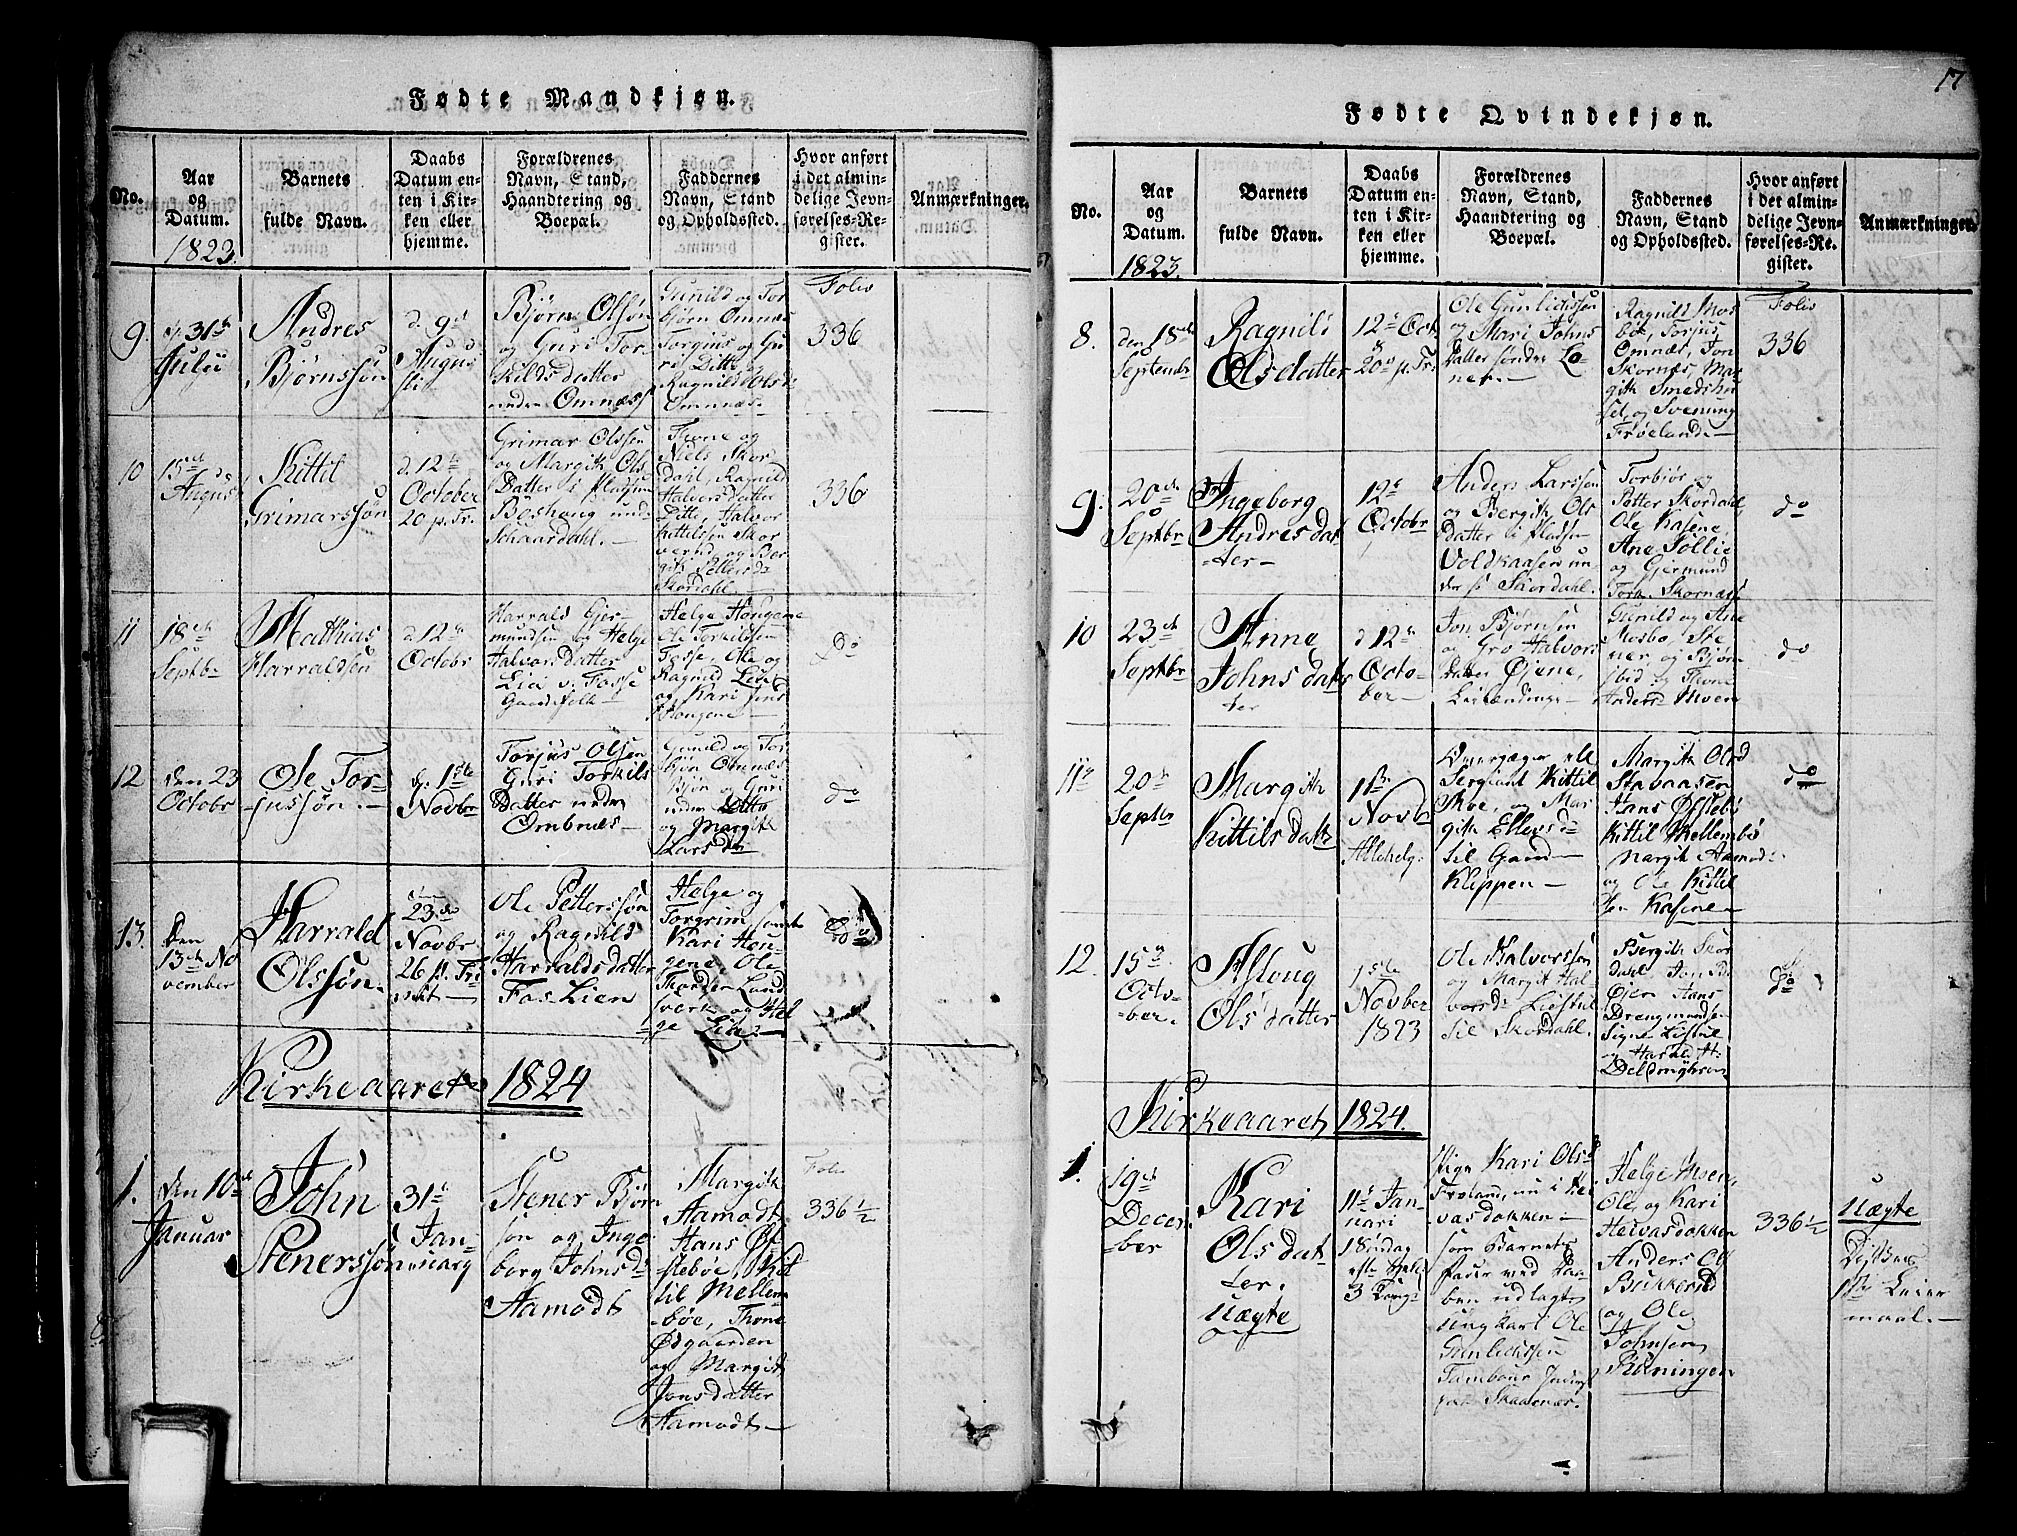 Fødte Mandkjøn.
No.
Aar
og
Datum.
1823
Barnets
fulde Navn.
Daabs
Datum en-
ten i Kir-
ken eller
hjemme.
Forældrenes
Navn, Stand,
Haandtering og
Boepæl.
Faddernes
Navn, Stand
og Opholdssted.
Hvor anført
i det almin-
delige Jevn-
førelses-Re-
gister.
Anmærkninger.
9.
31
Julii
Andres
Bjørnssøn
d. 9de
Augus
sti
Bjørn Olsøn
og Guri Tor-
kilds datter
nedre Omnæss
Gunild og Tor-
bjørn Omnæs
Torgius og Gu
ri Ditto, og
Ragnild Olsd.
Omnæs-
Folio
336
10
15de
Augus
Kittil
Grimarssøn
d. 12te
October
20 p. Tr.
Grimar Olssøn
og Margith Ols
Datter i Pladsen
und
Schaardahl.-
Thone og
Niels Skor-
dahl, Ragnild
Halvorsdatter
Ditto, Halvor
Kittilsen Skor
og Ber-
gith Pettersd.
Skordahl.
336
11
18de
Septbr
Mathias
Harraldsen
d. 12te
Octobr
Harrald Gjer-
mundsen, og Helge
Halvorsdatter
Lia v. Fosse
Gaardsfolk-
Helge Hougene
Ole Torkildsen
Fosse, Ole og
Ragnild Lia
og Kari
Hougene-
do
12
den 23
Octobr
Ole Tor-
jussøn.-
d. 1ste
Novbr
Torjus Olsen
Guri Torkils
Datter nedre
Ombnæs-
Gunild og Tor-
bjøn Omnæs
og Guri
nedre Ditto
og Margith
Larsdr
do
13.
Den
13de No
vember
Harrald
Olssøn.
23de
Novbr.
26 p. Tri
nit-
Ole Petterssøn
og Ragnild
Harraldsdatter
Fos Lien
Helge og
Torgrim samt
Kari Hou-
gene Ole
Thorder Land
sverk og Hel
ge Lia-
do
Kirkeaaret 1824
1.
den 10de
Januar
John
Stenerssøn
31te
Jan-
uarii
Stener Bjørn
søn og Inge
borg Johnsd.
Aamodt
Margith
Aamodt
Hans Øf-
stebøe, Kit
til Mellem
-bøe, Thone
Ødgaarden
og Margith
Jonsdatter
Aamodt-
Folio
336 1/2
17
Fødte Qvindekjøn.
No.
Aar
og
Datum.
1823.
Barnets
fulde Navn.
Daabs
Datum en-
ten i Kir-
ken eller
hjemme.
Forældrenes
Navn, Stand,
Haandtering og
Boepæl.
Faddernes
Navn, Stand
og Opholdssted.
Hvor anført
i det almin-
delige Jevn-
førelses-Re-
gister.
Anmærkninger.
8.
den 18de
Septembr
Ragnild
Olsdatter
12te Oct.
20de p. Tr.
Ole Gunlichssøn
og Mari Johns
datter søndre Lo-
ner.-
Ragnild Mos-
bø, Torjus
Omnæs, Jon
Skornæs, Mar-
gith Smedshu-
sel, og Svenung
Frøeland-
Folio
336
9.
20de
Septbr
Ingeborg
Andresdat
-ter-
12te
Octobr
Anders Larssøn
og Bergith Ols
datter i Pladsen
Voldkaasen un-
der Skordahl.
Torbjør og
Petter Skordahl,
Ole Kasene,
Ane Tollie
og Gjermund
Tork. Skornæs
do
10
23de
Septbr
Anne
Johnsdat
ter
d 12te
Octo-
ber-
Jon Bjørnsen
og Gro Halvors
datter Øjene,
Leilændinge-
Gunild og Ane
Mosbø, Ste
ner og Bjøn
og Thone
Anders Moen
do
11te
20de
Septbr
Margith
Kittilsdatter
1ste
Novbr
Allehelg.
Sergiant Kittil
Moe, og Mar
gith Ellevsd.
til Gaard
Klippen-
Margith Olsd
Stavaasen
Hans Øfstebø
Kittil Mellembø
Margith Aamodt
og Ole Kittil
sen Kasine-
do
12.
15de
Octo-
-ber.
Asloug
Olsdatter
1ste
Novber
1823
Ole Halvorssøn
og Margit Hal
vorsd. Liestul
til Skordahl.
Bergith Skor
dahl Jon
Øjen Hans
Drengmundsen
Signe Listul
og Harald H.
do
Kirkeaaret 1824.
1.
19de
Decem-
-ber
Kari
Olsdat
ter.
Uægte
11te Jan-
uari
1 Søndag
efter Hell.
3 Kong.
Pige Kari Olsd.
Frøland, nu i Hei
vasdokken-
som Barnets
Fader ved Daa-
ben udlagt
ungkarl Ole
Gunlichssen
Tambour
paa Skaanæs.
Helge Moen,
Ole, og Kari
Heivasdokken
Anders Ols
og Ole
Johnsen
Rueningen
336 1/2
Uægte
1te Leier
maal.-